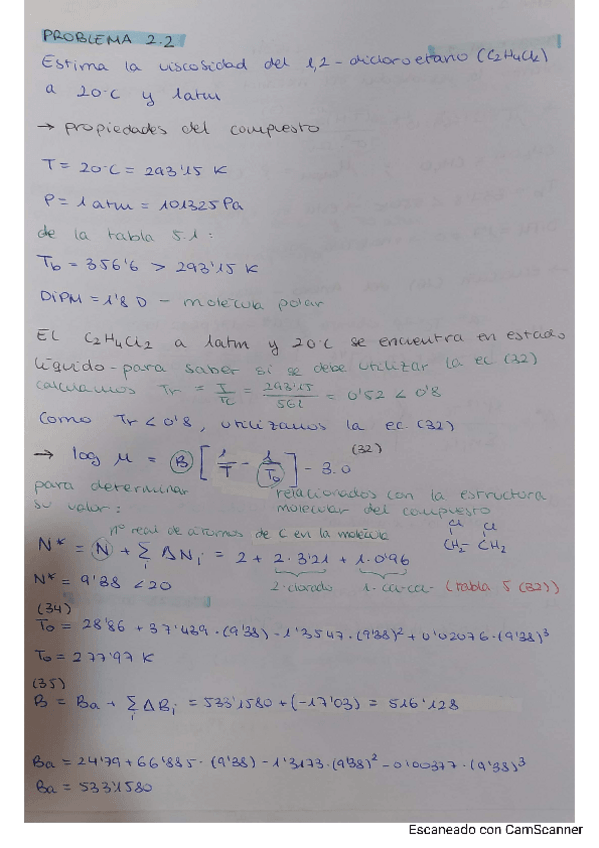 PROBLEMA 2.2
Estima la viscosidad del 1,2-dicloroetano (C2H4Cl2)
a 20°C y 1atm
→ propiedades del compuesto
T = 20°C = 293'15 K
P = 1 atm = 101325 Pa
de la tabla 5.1:
Tb = 356'6 > 293'15 K
DIPM = 1'8 D - molécula polar
El C2H4Cl2 a 1atm y 20°C se encuentra en estado
líquido - para saber si se debe utilizar la ec (32)
calculamos Tr = T/Tc = 293'15/561 = 0'52 < 0'8
Como Tr < 0'8, utilizamos la ec. (32)
→ log μ = B [1/T - 1/To] - 3.0 (32)
para determinar su valor:
relacionados con la estructura molecular del compuesto
nº real de átomos de C en la molécula
Cl Cl
CH2 - CH2
N* = N + Σi ΔNi = 2 + 2·3'21 + 1·0'96
N* = 9'38 < 20
2-clorado 1-Cl-Cl- (tabla 5 (32))
(34)
To = 28'86 + 37'439·(9'38) - 1'3547·(9'38)² + 0'02076·(9'38)³
To = 277'97 K
(35)
B = Ba + Σi ΔBi = 533'1580 + (-17'03) = 516'128
Ba = 24'79 + 66'885·(9'38) - 1'3173·(9'38)² - 0'00377·(9'38)³
Ba = 533'1580
Escaneado con CamScanner